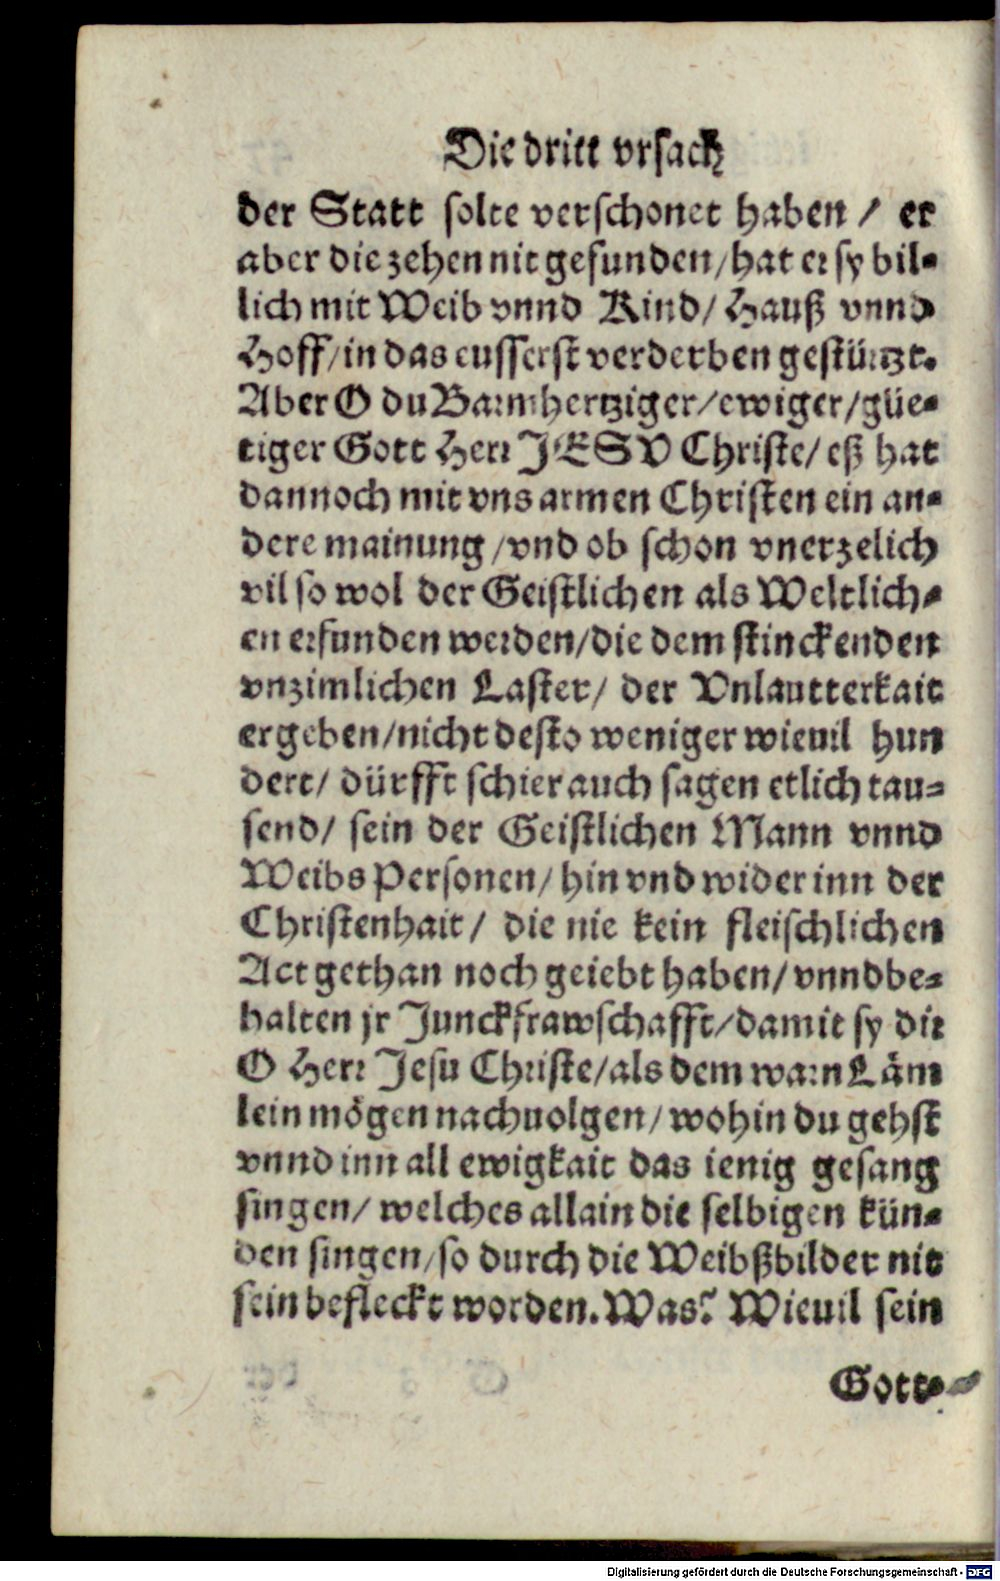 Die dritt vrsach
der Statt solte verschonet haben / er
aber die zehen nit gefunden/hat er sy bil-
lich mit Weib vnnd Kind/ Hauß vnnd
Hoff/in das eusserst verderben gestürtzt.
Aber O du Barmhertziger/ewiger/güe-
tiger Gott Herr JESV Christe/ eß hat
dannoch mit vns armen Christen ein an-
dere mainung /vnd ob schon vnerzelich
vil so wol der Geistlichen als Weltlich-
en erfunden werden/die dem stinckenden
vnzimlichen Laster/ der Vnlautterkait
ergeben/nicht desto weniger wieuil hun
dert/ dürfft schier auch sagen etlich tau-
send/ sein der Geistlichen Mann vnnd
Weibs Personen/ hin vnd wider inn der
Christenhait/ die nie kein fleischlichen
Act gethan noch geiebt haben/ vnnd be-
halten jr Junckfrawschafft/damit sy dir
O Herr Jesu Christe/als dem warn Läm
lein mögen nachuolgen/ wohin du gehst
vnnd inn all ewigkait das ienig gesang
singen/ welches allain die selbigen kün-
den singen/so durch die Weibßbilder nit
sein befleckt worden. Was? Wieuil sein
Gott-
Digitalisierung gefördert durch die Deutsche Forschungsgemeinschaft - DFG